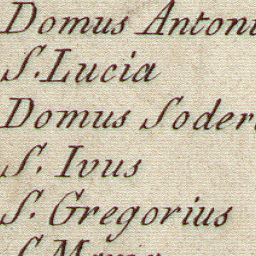 Domus Antoni
S. Lucia
Domus Soder
S. Ivus
S. Gregorius
S.